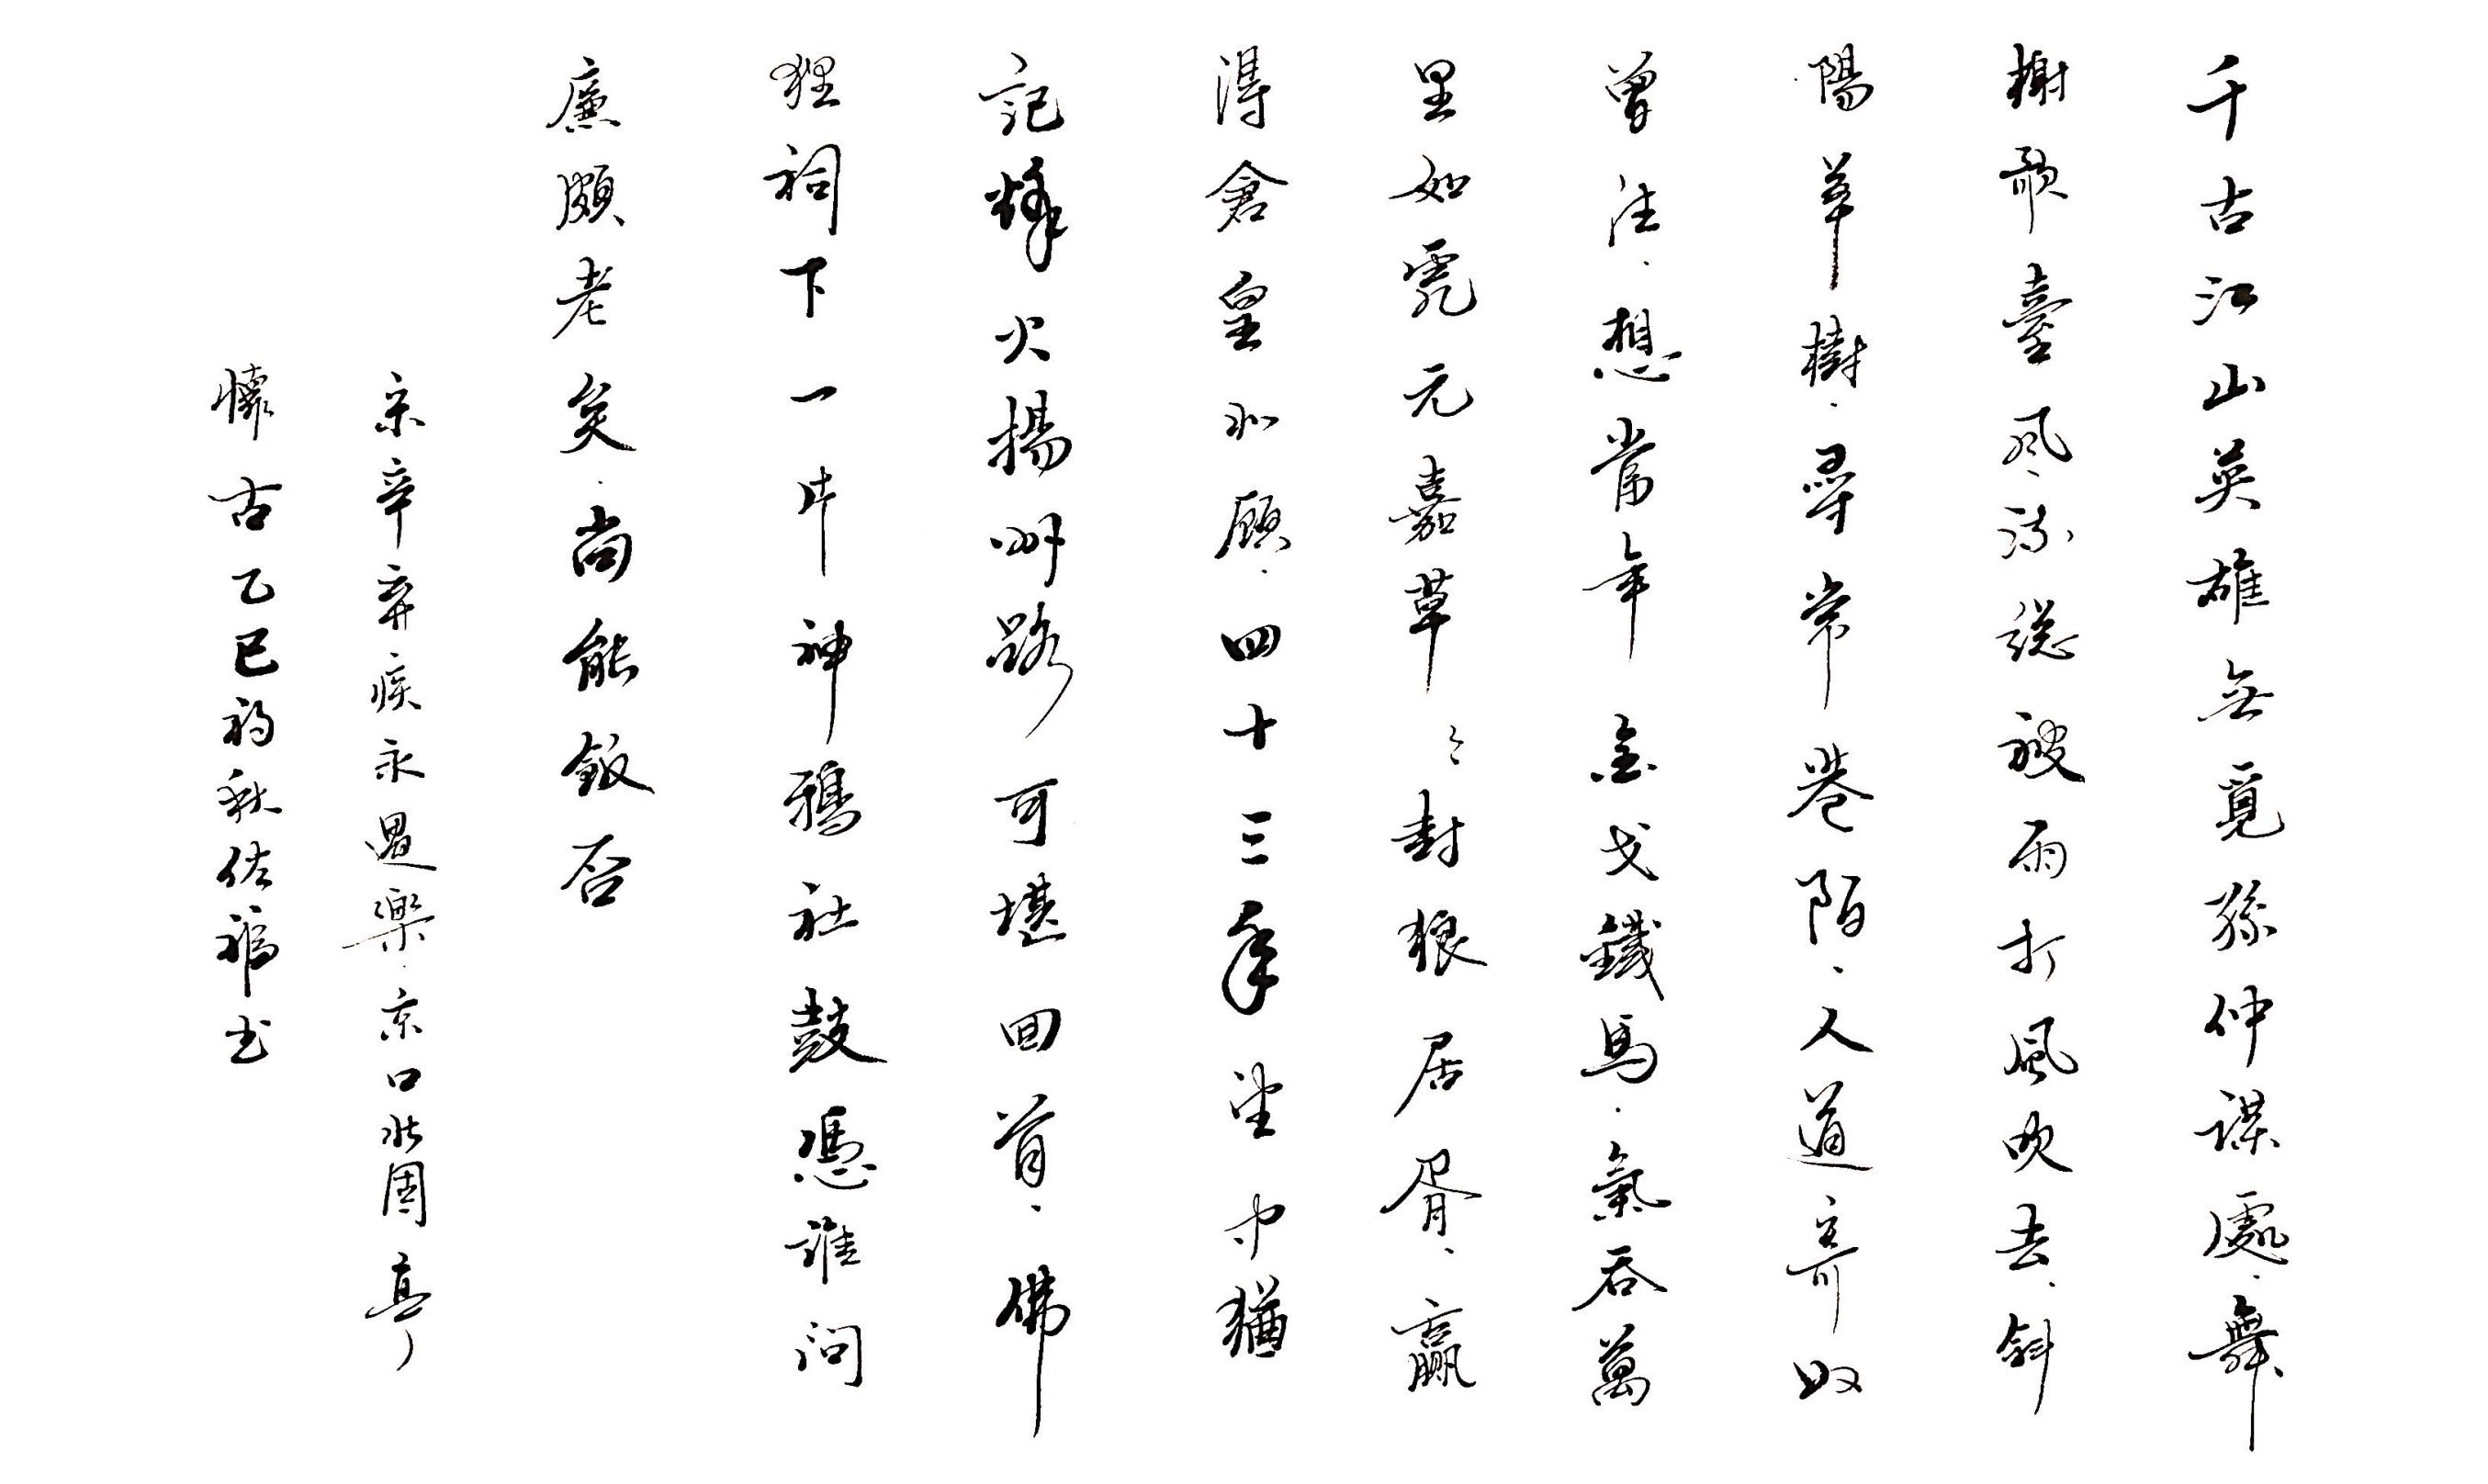 千古江山英雄無覓孫仲謀處舞
榭歌臺風流總被雨打風吹去斜
陽草樹尋常巷陌人道寄奴
曾住想當年金戈鐵馬氣吞萬
里如虎元嘉草〻封狼居胥贏
得倉皇北顧四十三年望中猶
記烽火揚州路可堪回首佛
狸祠下一片神鴉社鼓憑誰問
廉頗老矣尚能飯否
宋辛棄疾永遇樂京口北固亭
懷古乙巳初秋佐福书